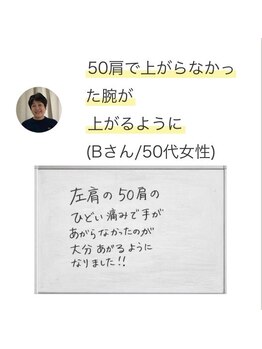 50肩で上がらなかっ
た腕が
上がるように
(Bさん/50代女性)
左肩の50肩の
ひどい痛みで手が
あがらなかったのが
大分あがるように
なりました!!